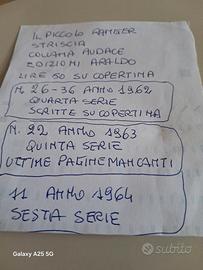 IL PICCOLO RANGER
STRISCIA
COLLANA AUDACE
EDIZIONI ARALDO
LIRE 50 SU COPERTINA
N. 26-36 ANNO 1962
QUARTA SERIE
SCRITTE SU COPERTINA
N. 22 ANNO 1963
QUINTA SERIE
ULTIME PAGINE MANCANTI
11 ANNO 1964
SESTA SERIE
Galaxy A25 5G
subito